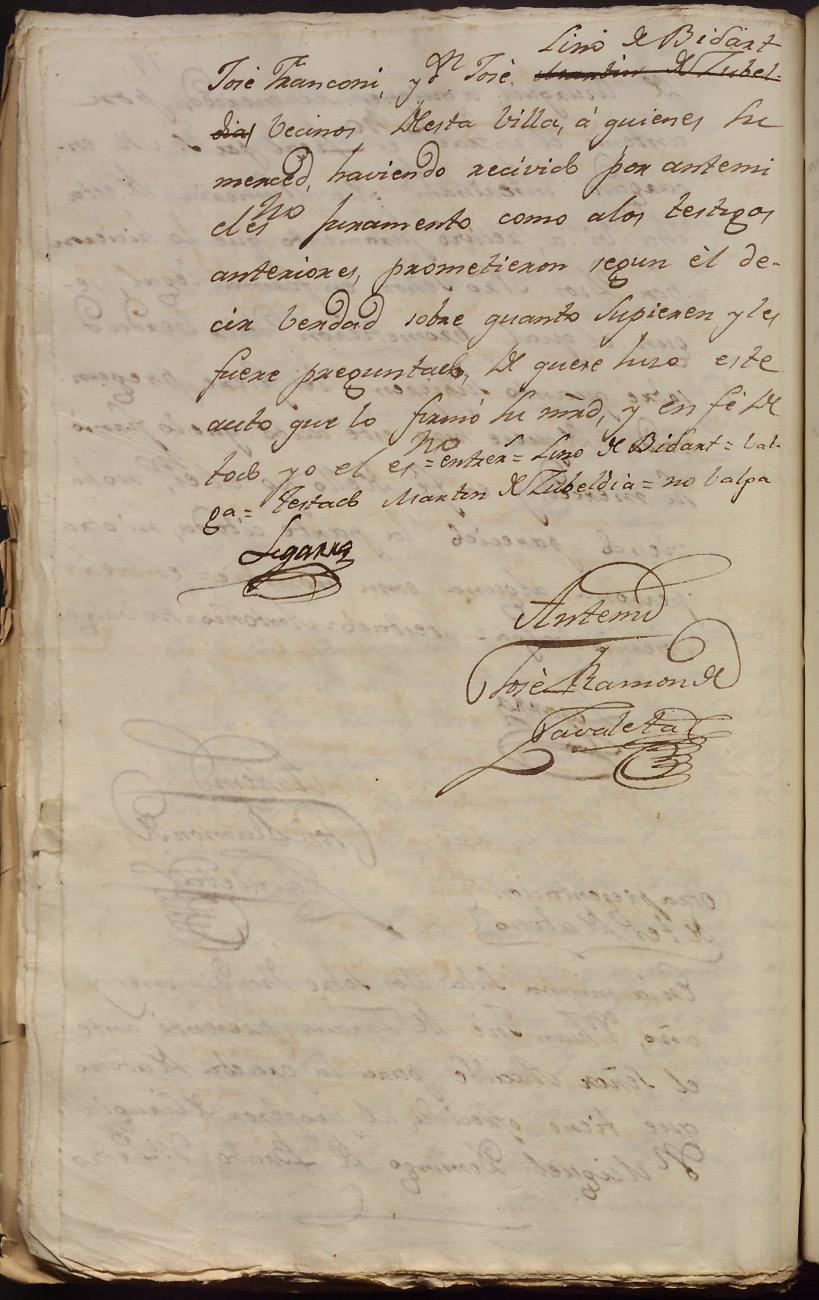 Lino de Bidart
Josè Franconi, y Dn. Josè Martin de Zubel-
dia, Vecinos desta Villa, á quienes su
merced, haviendo recivido por antemi
el esno juramento como alos testigos
anteriores, prometieron segun èl de-
cir Verdad sobre quanto supieren y les
fuere preguntado, de quese hizo este
auto que lo firmó su mrd, y en fé de
todo yo el esno = entrer.s = Lino de Bidart = Val-
ga = Testado Martin de Zubeldia = no Valga
Legarra
Antemi
Josè Ramon de
Zavaleta